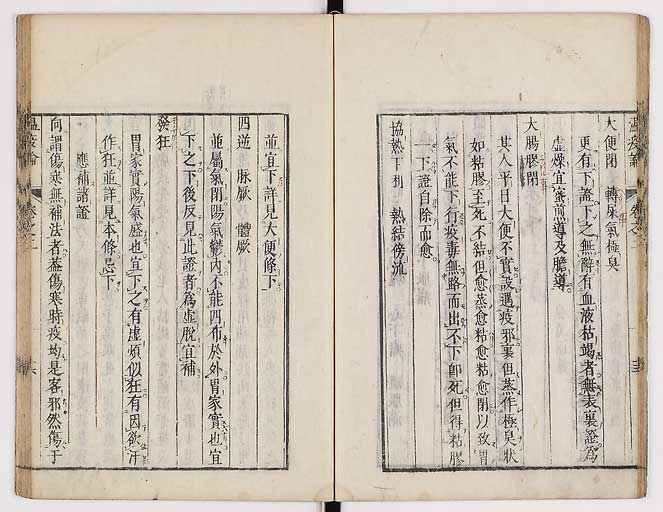 大便閉　轉屎氣極臭
更有下證下之無辭有血液枯竭者無表裏證爲
虛燥宜蜜煎導及膽導
大腸膠閉
其人平日大便不實設遇疫邪裏但蒸作極臭狀
如粘膠至死不結但愈蒸愈粘愈粘愈閉以致胃
氣不能下行疫毒無路而出不下卽死但得粘膠
一下證自除而愈
協熱下利　熱結傍流
並宜下詳見大便條下
四逆　脉厥　體厥
並屬氣閉陽氣鬱內不能四布於外胃家實也宜
下之下後反見此證者爲虛脫宜補
發狂
胃家實陽氣盛也宜下之有虛煩似狂有因欲汗
作狂並詳見本條忌下
應補諸證
向謂傷寒無補法者蓋傷寒時疫均是客邪然傷于